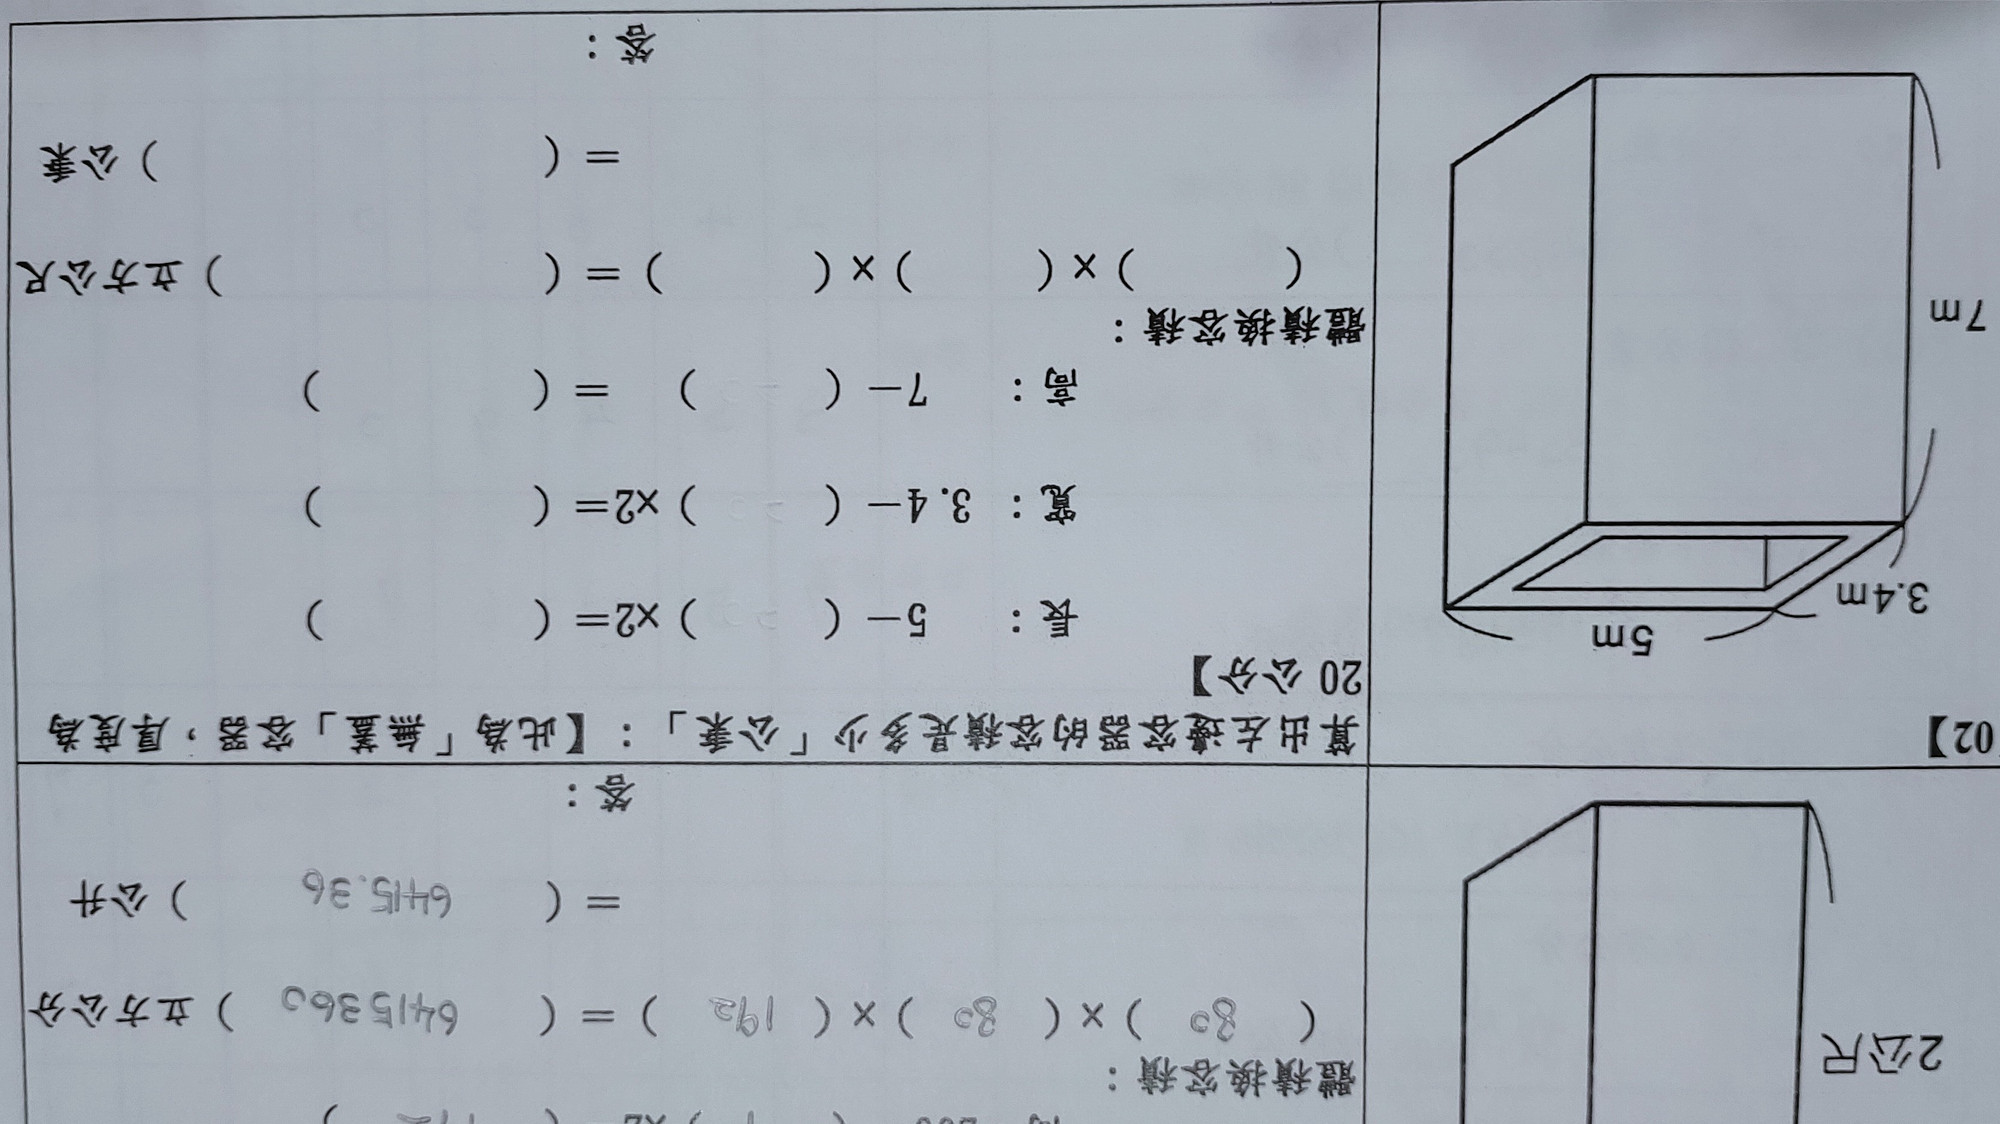 2公尺
體積換容積：
( 80 )×( 80 )×( 192 )=( 6415360 )立方公分
=( 6415.36 )公升
答：
02】
算出左邊容器的容積是多少「公秉」：【此為「無蓋」容器，厚度為
20 公分】
5m
3.4m
7m
長： 5-( )×2=( )
寬： 3.4-( )×2=( )
高： 7-( ) =( )
體積換容積：
( )×( )×( )=( )立方公尺
=( )公秉
答：